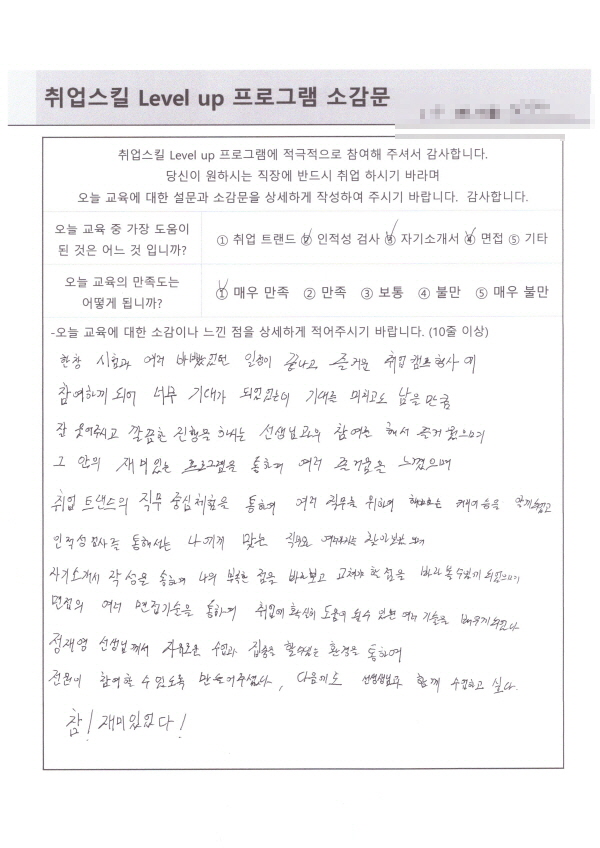 취업스킬 Level up 프로그램 소감문
취업스킬 Level up 프로그램에 적극적으로 참여해 주셔서 감사합니다.
당신이 원하시는 직장에 반드시 취업 하시기 바라며
오늘 교육에 대한 설문과 소감문을 상세하게 작성하여 주시기 바랍니다. 감사합니다.
오늘 교육 중 가장 도움이
된 것은 어느 것 입니까?
① 취업 트랜드 ② 인적성 검사 ③ 자기소개서 ④ 면접 ⑤ 기타
오늘 교육의 만족도는
어떻게 됩니까?
① 매우 만족 ② 만족 ③ 보통 ④ 불만 ⑤ 매우 불만
-오늘 교육에 대한 소감이나 느낀 점을 상세하게 적어주시기 바랍니다. (10줄 이상)
한창 시험과 여러 바빴었던 일정이 끝나고 즐거운 취업캠프행사에
참여하게 되어 너무 기대가 되었었는데 기대를 미치고도 남을 만큼
잘 웃어주시고 깔끔한 진행을 하시는 선생님과의 참여를 해서 즐거웠으며
그 안의 재미있는 프로그램을 통하여 여러 즐거움을 느꼈으며
취업 트랜드의 직무 중심채용을 통하여 여러 직무를 위하여 해야하는 커리어등을
인적성검사를 통해서는 나에게 맞는 직무는 찾아보았으며
자기소개서 작성을 통하여 나의 부족한 점을 바라보고 고쳐야할점을 바라볼수있게 되었으며
면접의 여러 면접기술을 통하여 취업에 확실히 도움이 될수 있는 여러 기술을 배우게되었다
정재영 선생님께서 자유로운 수업과 집중을 할수있는 환경을 통하여
전원이 참여할 수 있도록 만들어주셨다, 다음에도 선생님과 함께 수업하고 싶다.
참! 재미있었다!